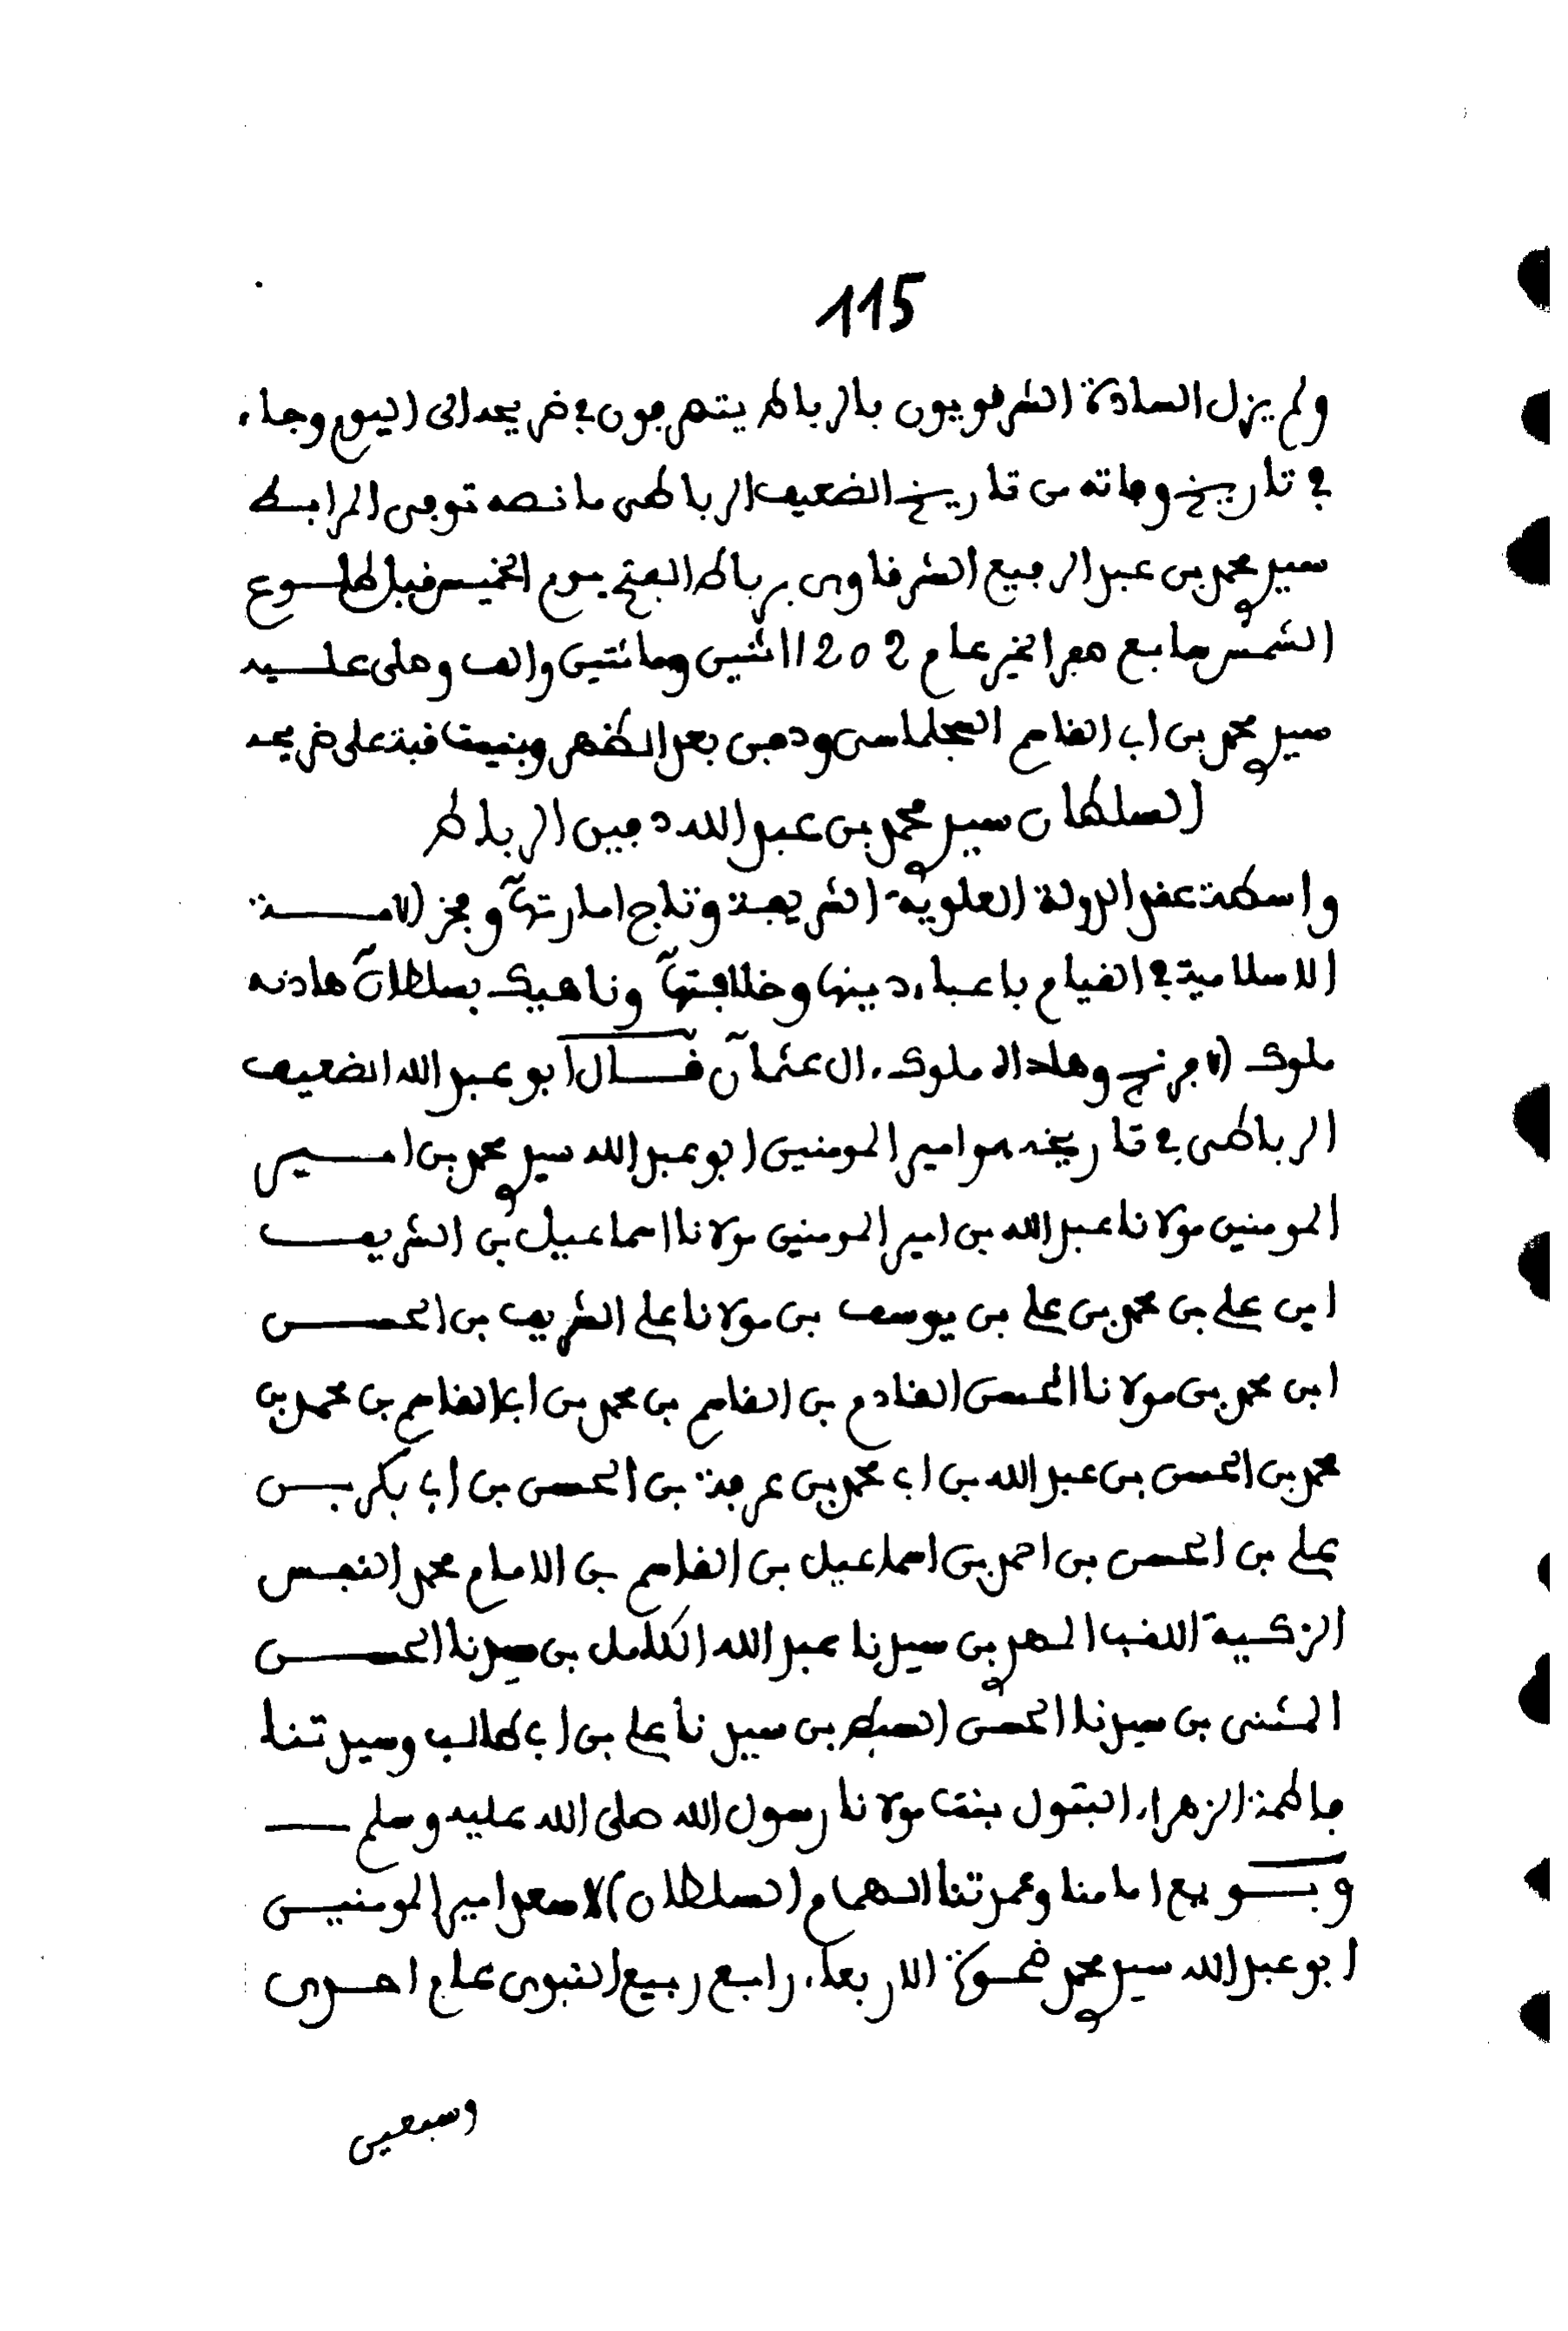 115
ولم يزل السادة الشرقويون بالرباط يتصرفون في ضريحه الى اليوم وجاء
في تاريخ وفاته من تاريخ الضعيف الرباطي ما نصه توفي المرابط
سيدي محمد بن عبد الرفيع الشرقاوي برباط الفتح يوم الخميس قبل طلوع
الشمس سابع صفر الخير عام 1202 اثنين ومائتين والف وصلى عليه
سيدي محمد بن ابي القاسم السجلماسي ودفن بعد الظهر وبنيت قبة على ضريحه
السلطان سيدي محمد بن عبد الله دفين الرباط
واسطة عقد الدولة العلوية الشريفة وتاج امارتها وفخر الامة
الاسلامية في القيام باعباء دينها وخلافتها وناهيك بسلطان هادنه
ملوك الافرنج وهاداه ملوك ءال عثمان قال ابو عبد الله الضعيف
الرباطي في تاريخه هو امير المومنين ابو عبد الله سيدي محمد بن امير
المومنين مولانا عبد الله بن امير المومنين مولانا اسماعيل بن الشريف
ابن علي بن محمد بن علي بن يوسف بن مولانا علي الشريف بن الحسن
ابن محمد بن مولانا الحسن القادم بن القاسم بن محمد بن ابي القاسم بن محمد بن
محمد بن الحسن بن عبد الله بن ابي محمد بن عرفة بن الحسن بن ابي بكر بن
علي بن الحسن بن احمد بن اسماعيل بن القاسم بن الامام محمد النفس
الزكية اللقب المهدي بن سيدنا عبد الله الكامل بن سيدنا الحسن
المثنى بن سيدنا الحسن السبط بن سيدنا علي بن ابي طالب وسيدتنا
فاطمة الزهراء البتول بنت مولانا رسول الله صلى الله عليه وسلم
وبويع امامنا وعمدتنا الهمام السلطان الاسعد امير المومنين
ابو عبد الله سيدي محمد ضحوة الاربعاء رابع ربيع النبوي عام احدى
وسبعين